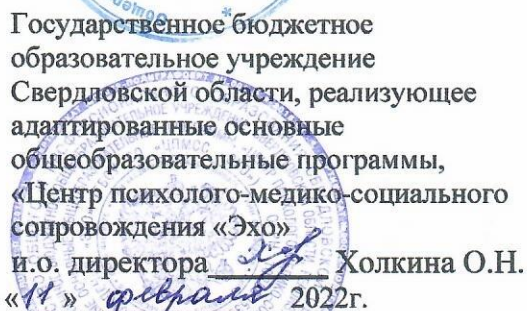 Государственное бюджетное
образовательное учреждение
Свердловской области, реализующее
адаптированные основные
общеобразовательные программы,
«Центр психолого-медико-социального
сопровождения «Эхо»
и.о. директора ________ Холкина О.Н.
«11 » февраля 2022г.